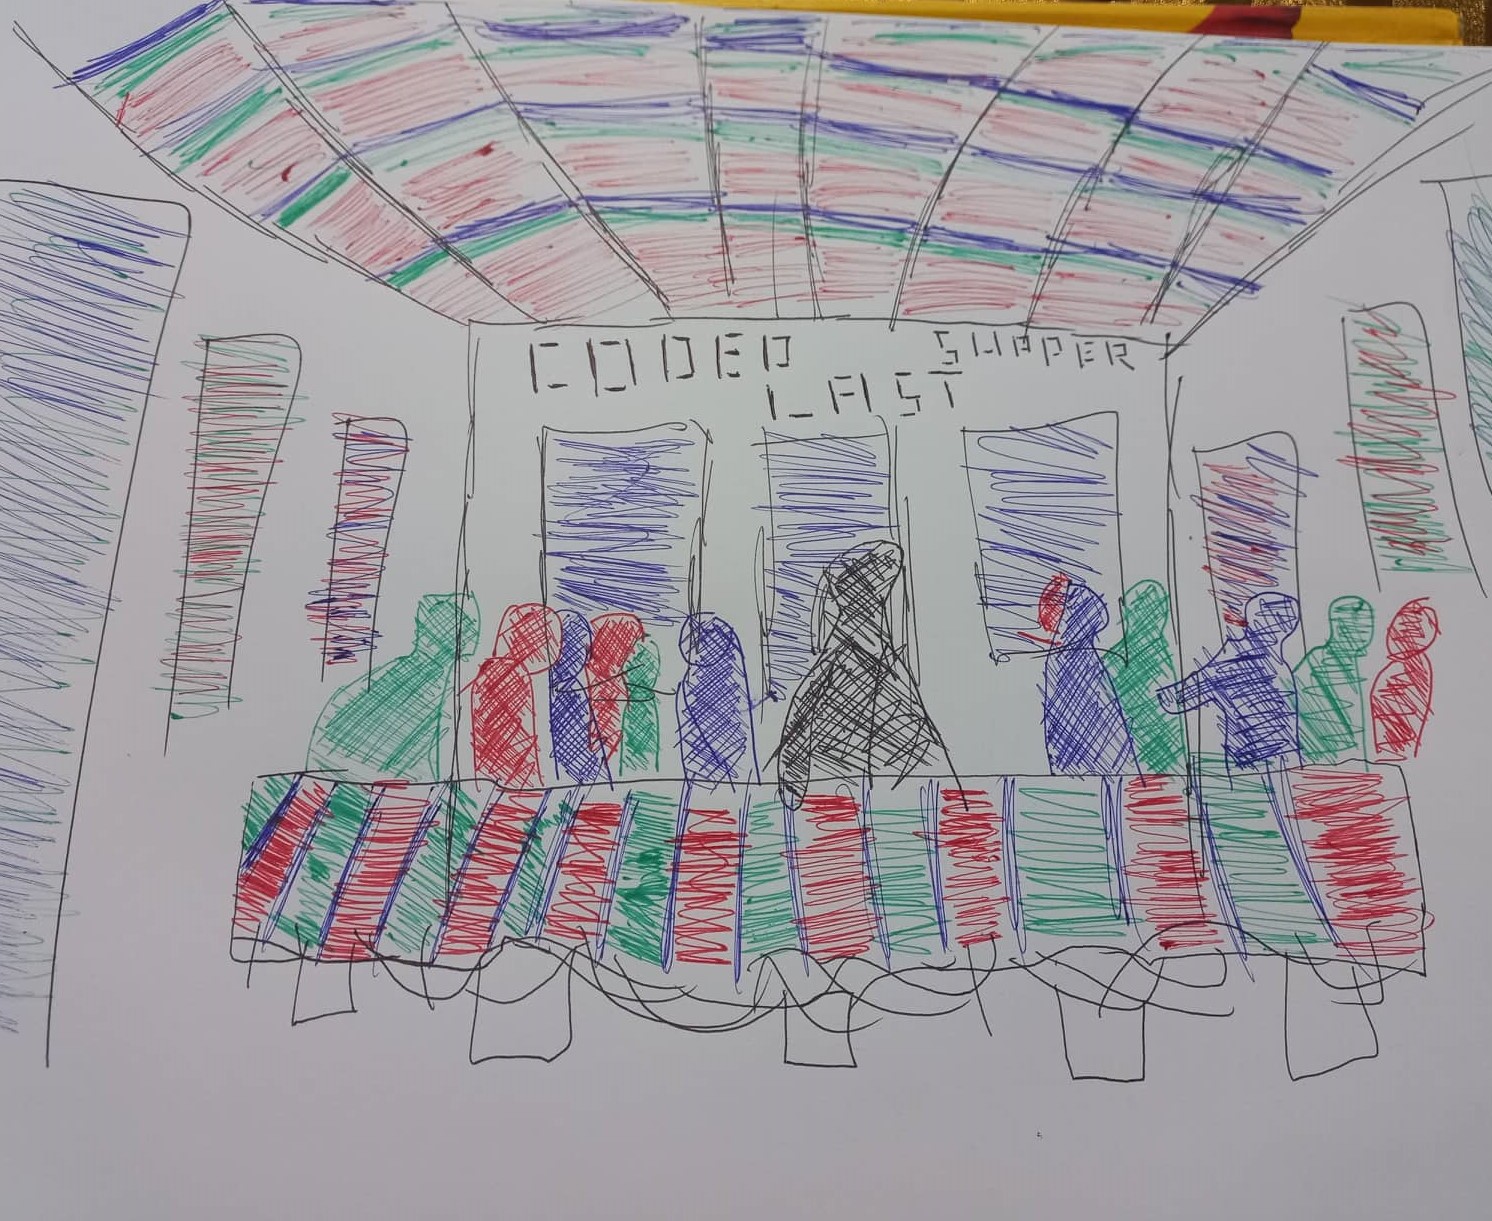 CODED
LAST
SUPPER